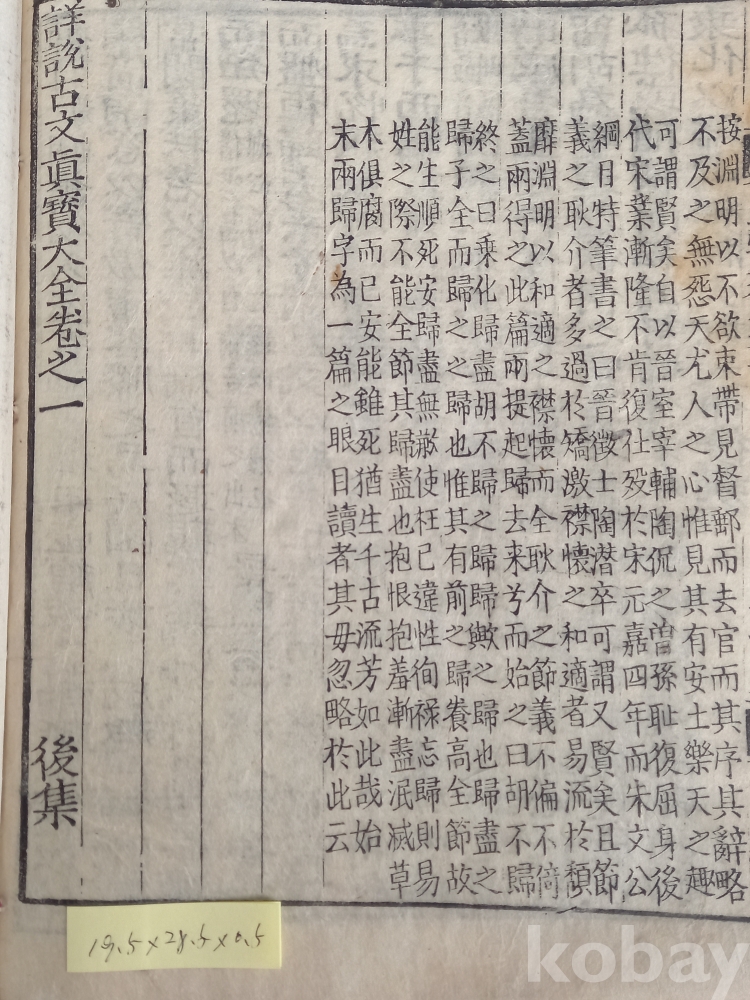 按淵明以不欲束帶見督郵而去官而其序其辭略
不及之無怨天尤人之心惟見其有安土樂天之趣
可謂賢矣自以晉室宰輔陶侃之曾孫耻復屈身後
代宋業漸隆不肯復仕歿於宋元嘉四年而朱文公
綱目特筆書之曰晉徵士陶潜卒可謂又賢矣且節
義之耿介者多過於矯激襟懷之和適者易流於頹
靡淵明以和適之襟懷而全耿介之節義不偏不倚
蓋兩得之此篇兩提起歸去来兮而始之曰胡不歸
終之曰乗化歸盡胡不歸之歸歸歟之歸也歸盡之
歸子全而歸之之歸也惟其有前之歸養高全節故
能生順死安歸盡無歉使枉已違性徇禄忘歸則易
姓之際不能全節其歸盡也抱恨抱羞漸盡泯滅草
木俱腐而已安能雖死猶生千古流芳如此哉始
末兩歸字為一篇之眼目讀者其毋忽略於此云
詳說古文眞寶大全卷之一 後集
19.5×28.5×0.5
kobay